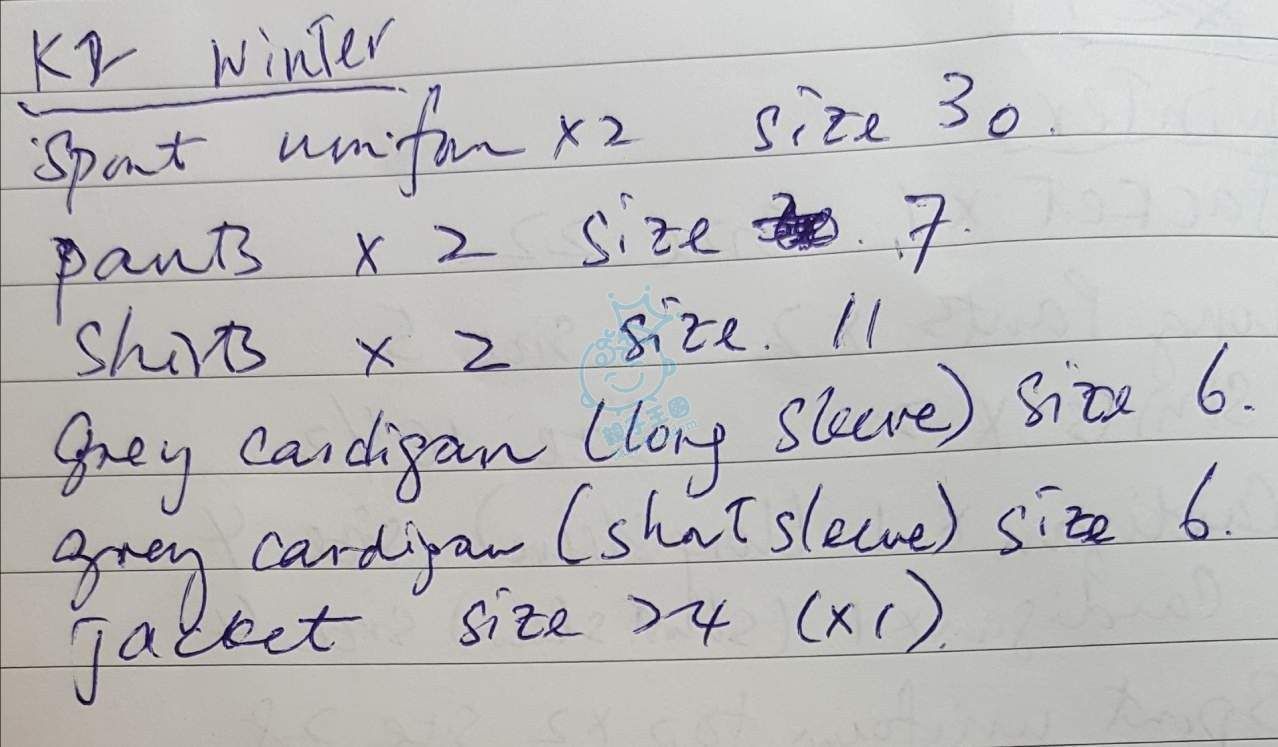 K2 Winter
Sport uniform x2 size 30.
pants x 2 size 7.
Shirts x 2 size. 11
Grey cardigan (long sleeve) size 6.
grey cardigan (short sleeve) size 6.
jacket size 24 (x1).